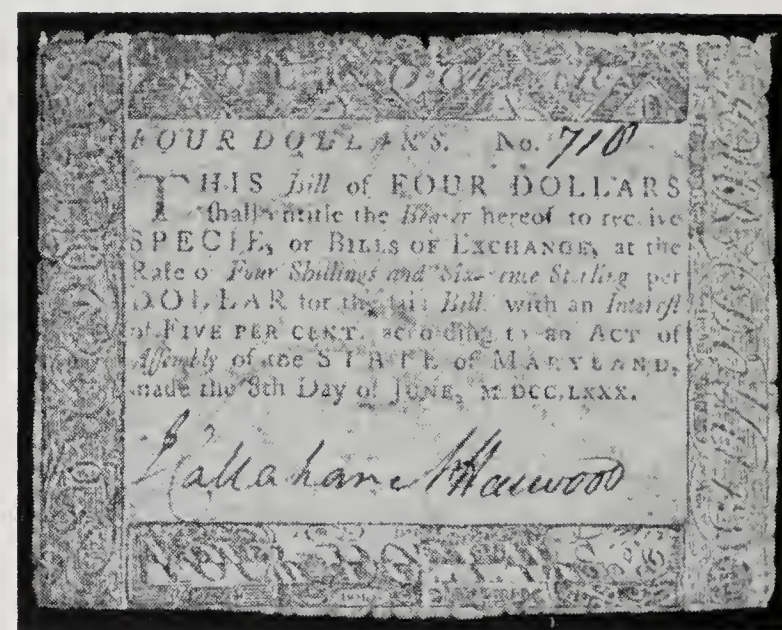 FOUR DOLLARS. No. 710
THIS Bill of FOUR DOLLARS
shall entitle the Bearer hereof to receive
SPECIE, or BILLS OF EXCHANGE, at the
Rate of Four Shillings and Six-pence Sterling per
DOLLAR for the said Bill, with an Interest
of FIVE PER CENT. according to an ACT of
Assembly of the STATE of MARYLAND,
made the 8th Day of JUNE, M.DCC.LXXX.
Callahan Harwood